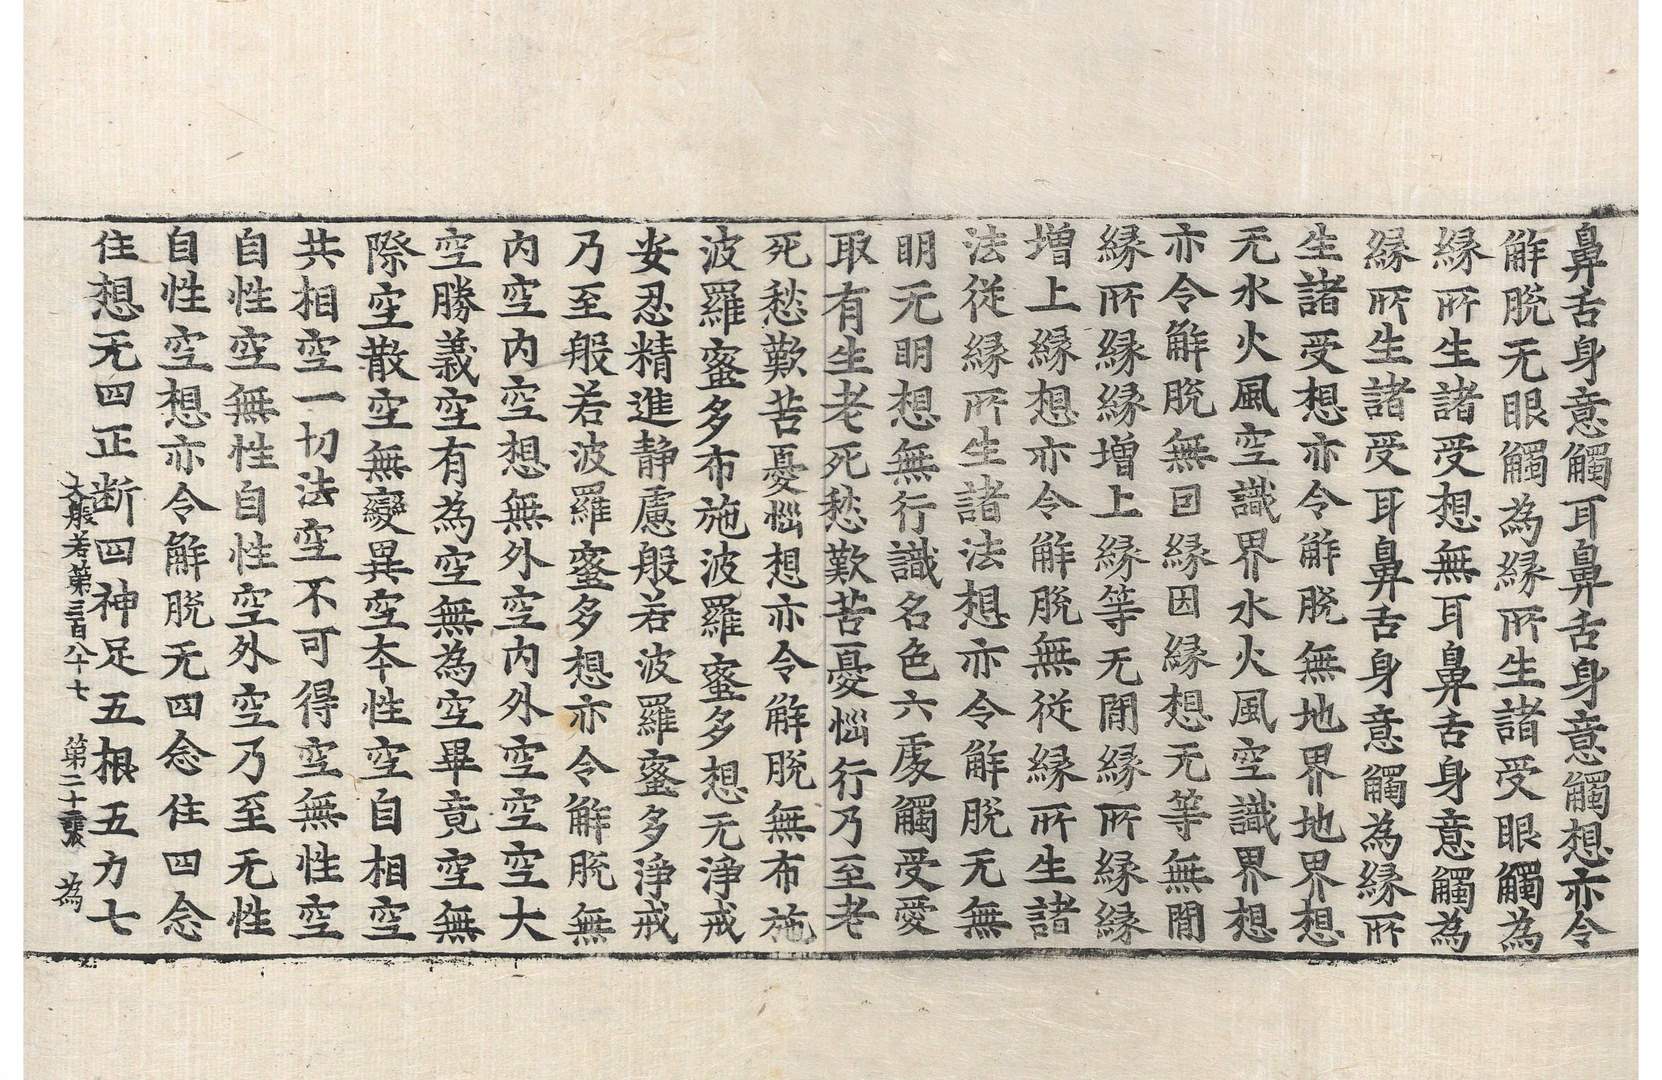 鼻舌身意觸耳鼻舌身意觸想亦令
解脫无眼觸為緣所生諸受眼觸為
緣所生諸受想無耳鼻舌身意觸為
緣所生諸受耳鼻舌身意觸為緣所
生諸受想亦令解脫無地界地界想
无水火風空識界水火風空識界想
亦令解脫無因緣因緣想无等無間
緣所緣緣增上緣等无間緣所緣緣
增上緣想亦令解脫無從緣所生諸
法從緣所生諸法想亦令解脫无無
明无明想無行識名色六處觸受愛
取有生老死愁歎苦憂惱行乃至老
死愁歎苦憂惱想亦令解脫無布施
波羅蜜多布施波羅蜜多想无淨戒
安忍精進静慮般若波羅蜜多淨戒
乃至般若波羅蜜多想亦令解脫無
內空內空想無外空內外空空空大
空勝義空有為空無為空畢竟空無
際空散空無變異空本性空自相空
共相空一切法空不可得空無性空
自性空無性自性空外空乃至无性
自性空想亦令解脫无四念住四念
住想无四正断四神足五根五力七
大般若第三百八十七 第二十張 為